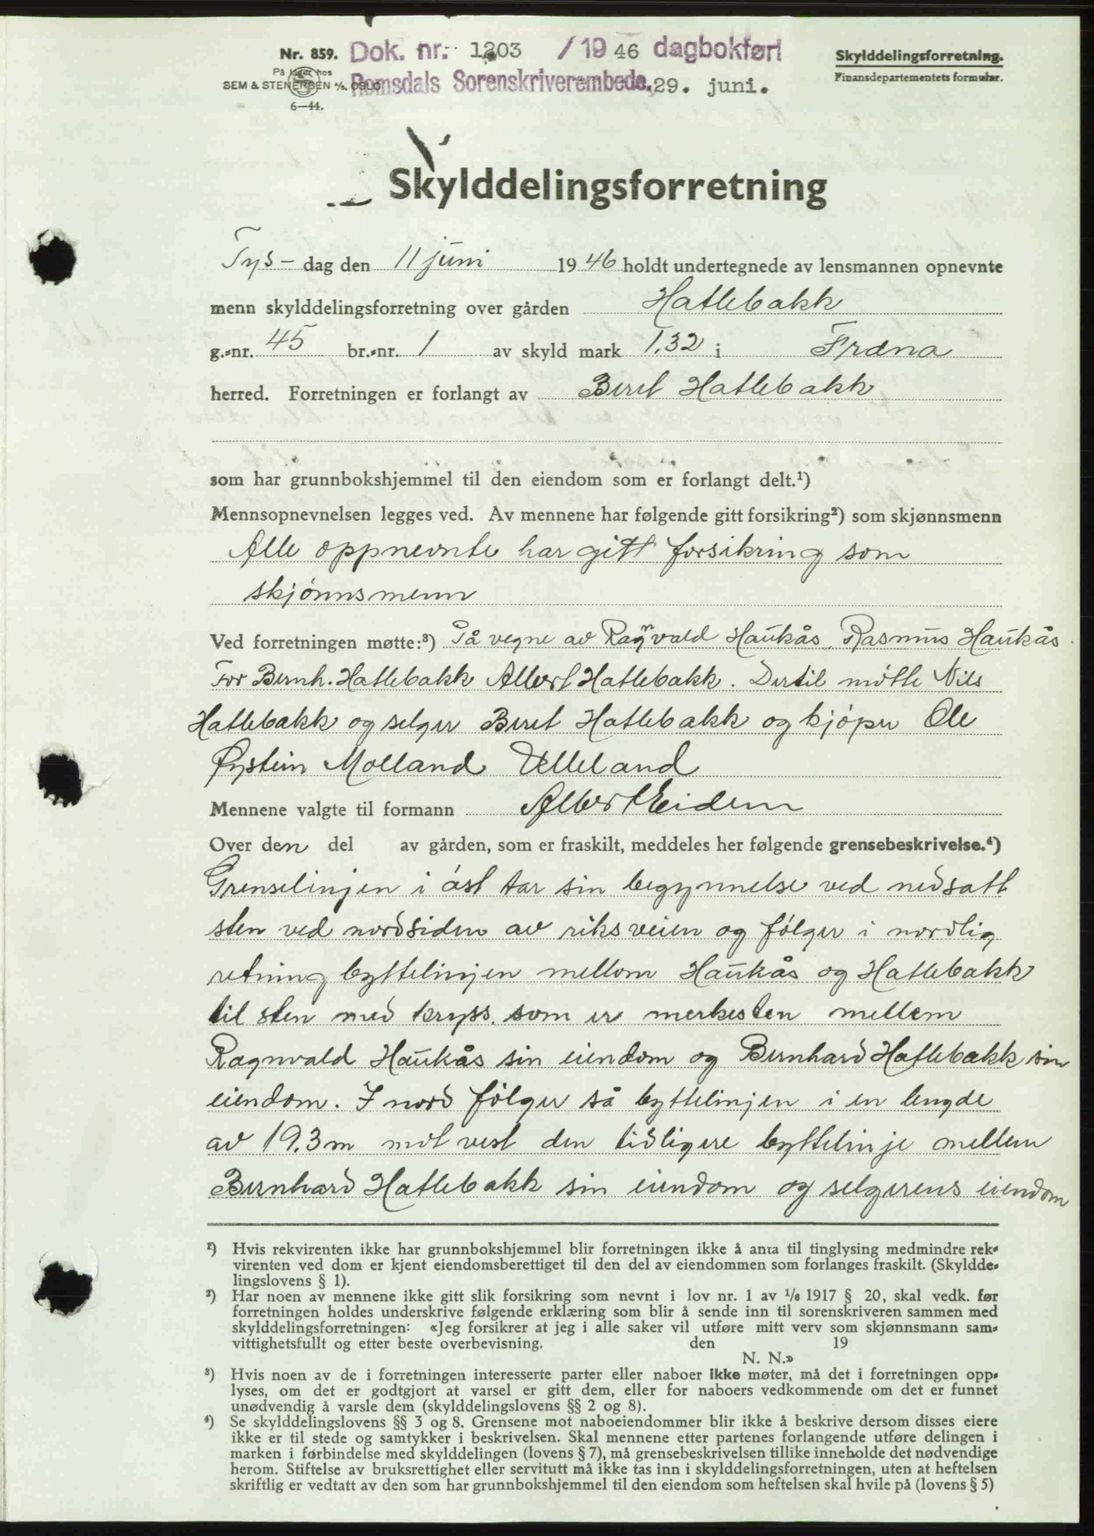 Nr. 859. Dok. nr. 1203 / 1946 dagbokført Skylddelingsforretning.
På lager hos Finansdepartementets formular.
SEM & STENERSEN A/S, OSLO Romsdals Sorenskriverembede, 29. juni.
6—44.
Skylddelingsforretning
Tys- dag den 11 juni 1946 holdt undertegnede av lensmannen opnevnte
menn skylddelingsforretning over gården Hatlebakk
g.-nr. 45 br.-nr. 1 av skyld mark 1,32 i Fræna
herred. Forretningen er forlangt av Beret Hatlebakk
som har grunnbokshjemmel til den eiendom som er forlangt delt.¹)
Mennsopnevnelsen legges ved. Av mennene har følgende gitt forsikring²) som skjønnsmenn
Alle oppnevnte har gitt forsikring som
skjønnsmenn
Ved forretningen møtte:³) På vegne av Ragnvald Haukås, Rasmus Haukås.
For Bernh. Hatlebakk Albert Hatlebakk. Dertil møtte Nils
Hatlebakk og selger Beret Hatlebakk og kjøper Ole
Øystein Molland Velleland
Mennene valgte til formann Albert Eidem
Over den del av gården, som er fraskilt, meddeles her følgende grensebeskrivelse.⁴)
Grenselinjen i øst tar sin begynnelse ved nedsatt
sten ved nordsiden av riksveien og følger i nordlig
retning byttelinjen mellom Haukås og Hatlebakk
til sten med kryss. som er merkesten mellem
Ragnvald Haukås sin eiendom og Bernhard Hatlebakk sin
eiendom. I nord følger så byttelinjen i en lengde
av 19.3 m mot vest den tidligere byttelinje mellem
Bernhard Hatlebakk sin eiendom og selgerens eiendom
¹) Hvis rekvirenten ikke har grunnbokshjemmel blir forretningen ikke å anta til tinglysing medmindre rek-
virenten ved dom er kjent eiendomsberettiget til den del av eiendommen som forlanges fraskilt. (Skyldde-
lingslovens § 1).
²) Har noen av mennene ikke gitt slik forsikring som nevnt i lov nr. 1 av ¹/₆ 1917 § 20, skal vedk. før
forretningen holdes underskrive følgende erklæring som blir å sende inn til sorenskriveren sammen med
skylddelingsforretningen: «Jeg forsikrer at jeg i alle saker vil utføre mitt verv som skjønnsmann sam-
vittighetsfullt og etter beste overbevisning. den 19
N. N.»
³) Hvis noen av de i forretningen interesserte parter eller naboer ikke møter, må det i forretningen opp-
lyses, om det er godtgjort at varsel er gitt dem, eller for naboers vedkommende om det er funnet
unødvendig å varsle dem (skylddelingslovens §§ 2 og 8).
⁴) Se skylddelingslovens §§ 3 og 8. Grensene mot naboeiendommer blir ikke å beskrive dersom disses eiere
ikke er til stede og samtykker i beskrivelsen. Skal mennene etter partenes forlangende utføre delingen i
marken i forbindelse med skylddelingen (lovens § 7), må grensebeskrivelsen tillike inneholde det nødvendige
herom. Stiftelse av bruksrettighet eller servitutt må ikke tas inn i skylddelingsforretningen, uten at heftelsen
skriftlig er vedtatt av den som har grunnbokshjemmel til den eiendom som heftelsen skal hvile på (lovens § 5)